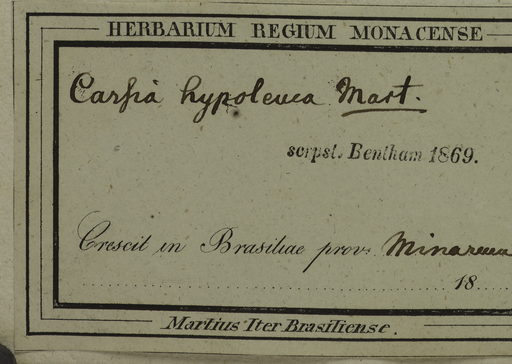 HERBARIUM REGIUM MONACENSE
Cassia hypoleuca Mart.
scrpst. Bentham 1869.
Crescit in Brasiliae prov.
18
Martius Iter Brasiliense.